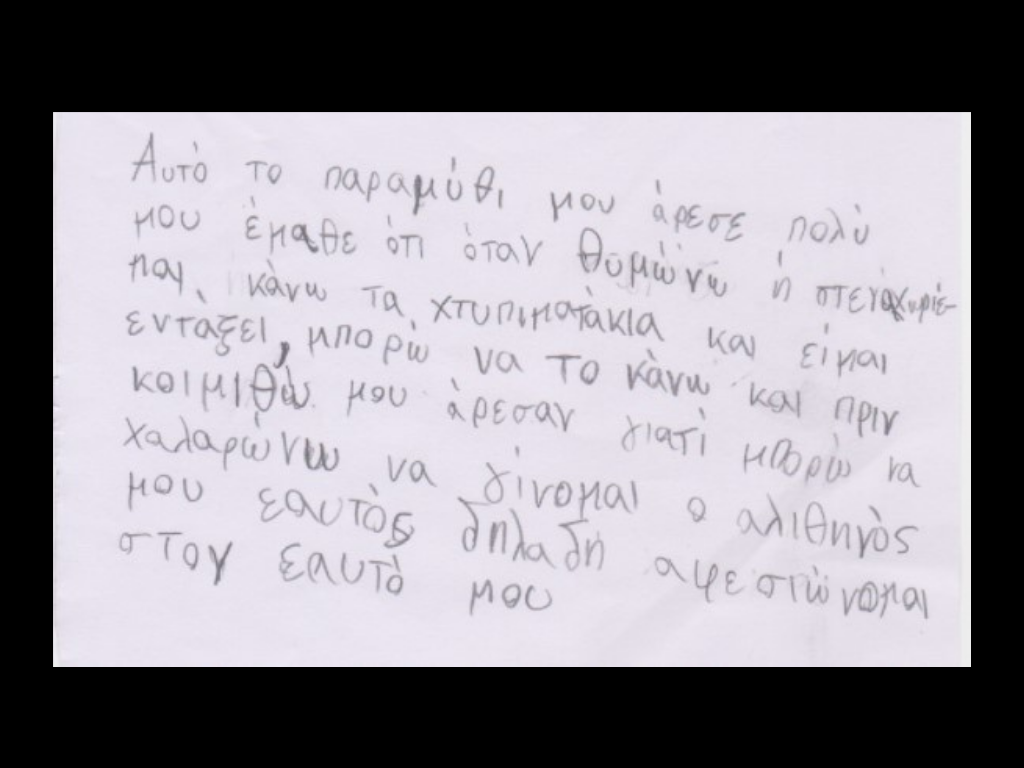 Αυτό το παραμύθι μου άρεσε πολύ
μου έμαθε ότι όταν θυμώνω ή στεναχωριέ-
μαι, κάνω τα χτυπιματάκια και είμαι
εντάξει, μπορώ να το κάνω και πριν
κοιμιθώ. μου άρεσαν γιατί μπορώ να
χαλαρώνω να γίνομαι ο αλιθηνός
μου εαυτός δηλαδή αφεσιώνομαι
στον εαυτό μου